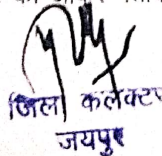 जिला कलेक्टर
जयपुर